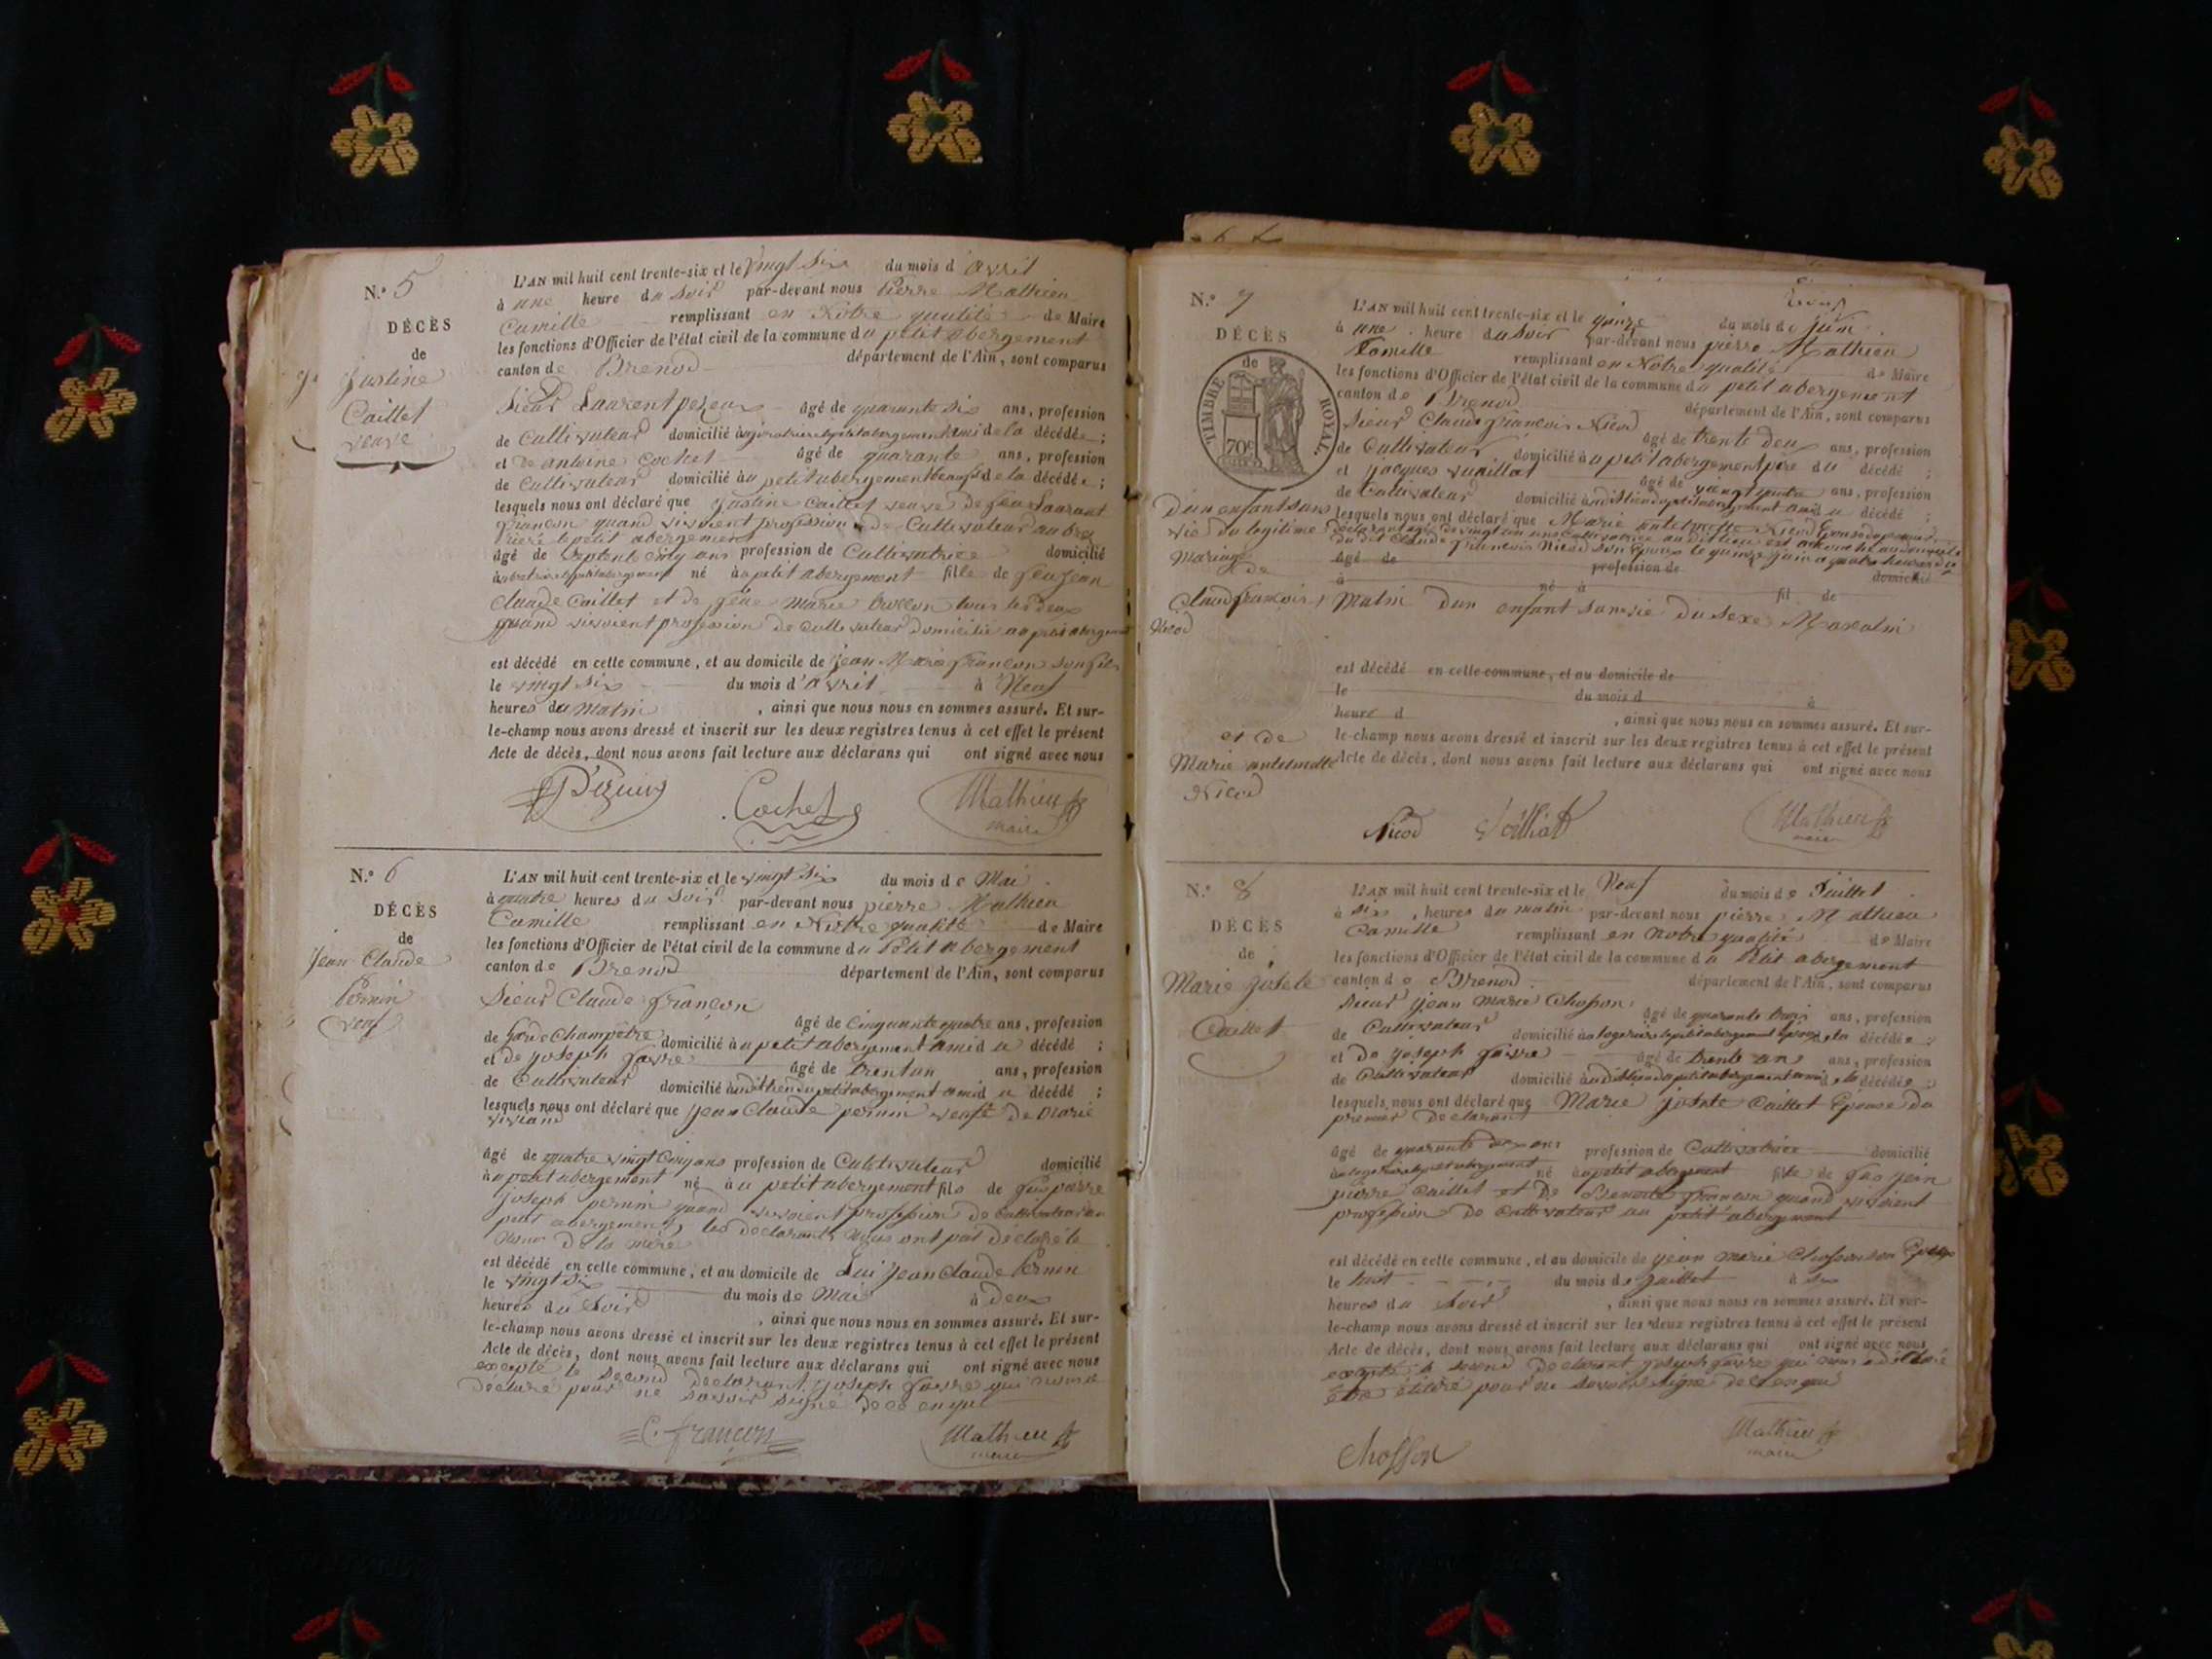 N.º 5
DÉCÈS
de
Justine
Caillet
veuve
L'AN mil huit cent trente-six et le vingt six du mois d'avril
à une heure du soir par-devant nous Pierre Mathieu
Camille remplissant en Notre qualité de Maire
les fonctions d'Officier de l'état civil de la commune du petit abergement
canton de Brenod département de l'Ain, sont comparus
Sieur Laurent âgé de quarante six ans, profession
de Cultivateur domicilié ami de la décédée ;
et de antoine Cochet âgé de quarante ans, profession
de Cultivateur domicilié au petit abergement de la décédée ;
lesquels nous ont déclaré que Justine Caillet veuve de feu Laurant
françon quand vivoient profession de Cultivateur
le petit abergement
âgé de septente ans profession de Cultivatrice domicilié
né au petit abergement fille de feu Jean
Claude Caillet et de feue Marie tous les deux
quand vivoient profession de cultivateur domicilié au petit abergement
est décédé en cette commune, et au domicile de Jean Marie françon son fils
le vingt six du mois d'avril à Neuf
heures du matin, ainsi que nous nous en sommes assuré. Et sur-
le-champ nous avons dressé et inscrit sur les deux registres tenus à cet effet le présent
Acte de décès, dont nous avons fait lecture aux déclarans qui ont signé avec nous
Cochet Mathieu
maire
N.º 6
DÉCÈS
de
Jean Claude
Pernin
veuf
L'AN mil huit cent trente-six et le vingt six du mois de Mai
à quatre heures du soir par-devant nous pierre Mathieu
Camille remplissant en Notre qualité de Maire
les fonctions d'Officier de l'état civil de la commune du Petit abergement
canton de Brenod département de l'Ain, sont comparus
Sieur Claude françon
âgé de Cinquante quatre ans, profession
de garde Champêtre domicilié au petit abergement ami du décédé ;
et de joseph favre âgé de trent un ans, profession
de Cultivateur domicilié audit lieu du petit abergement ami du décédé ;
lesquels nous ont déclaré que jean Claude pernin veuf de Marie
âgé de quatre vingt Cinq ans profession de Cultivateur domicilié
au petit abergement né au petit abergement fils de feu pierre
joseph pernin quand vivoient profession de cultivateur au
petit abergement, les déclarants nous ont pas déclaré le
nom de la mère
est décédé en cette commune, et au domicile de Lui Jean Claude Pernin
le vingt six du mois de Mai à deux
heures du Soir, ainsi que nous nous en sommes assuré. Et sur-
le-champ nous avons dressé et inscrit sur les deux registres tenus à cet effet le présent
Acte de décès, dont nous avons fait lecture aux déclarans qui ont signé avec nous
excepté le second déclarant joseph favre qui nous a
déclaré pour ne savoir signé de ce enquis
C. françon Mathieu
maire
N.º 7
DÉCÈS
de
TIMBRE ROYAL.
70c
D'un enfant sans
vie du légitime
Mariage
de
Claud francois
Nicod
et de
Marie antelmette
Nicod
L'AN mil huit cent trente-six et le quinze du mois de juin
à une heure du soir par-devant nous pierre Mathieu
Camille remplissant en Notre qualité de Maire
les fonctions d'Officier de l'état civil de la commune du petit abergement
canton de Brenod département de l'Ain, sont comparus
Sieur Claude françois Nicod âgé de trente deux ans, profession
de Cultivateur domicilié au petit abergement père du décédé ;
et jacques vuaillat âgé de ans, profession
de Cultivateur domicilié audit lieu du petit abergement ami du décédé ;
lesquels nous ont déclaré que Marie antelmette Nicod Epouse du premier
déclarant âgé de vingt cultivatrice au dit lieu est
du dit Claude françois Nicod son Epoux le quinze juin a quatre heures du
âgé de profession de domicilié
à né à fil de
Matin D'un enfant sans vie du sexe Masculin
est décédé en cette commune, et au domicile de
le du mois d à
heure d, ainsi que nous nous en sommes assuré. Et sur-
le-champ nous avons dressé et inscrit sur les deux registres tenus à cet effet le présent
Acte de décès, dont nous avons fait lecture aux déclarans qui ont signé avec nous
Nicod Mathieu
maire
N.º 8
DÉCÈS
de
Marie Josete
Caillet
L'AN mil huit cent trente-six et le Neuf du mois de Juillet
à six heures du matin par-devant nous pierre Mathieu
Camille remplissant en notre qualité de Maire
les fonctions d'Officier de l'état civil de la commune du Petit abergement
canton de Brenod département de l'Ain, sont comparus
sieur jean Marie Chosson âgé de quarante trois ans, profession
de Cultivateur domicilié Epoux de la décédée ;
et de joseph favre âgé de trente un ans, profession
de Cultivateur domicilié audit lieu du petit abergement ami de la décédée ;
lesquels nous ont déclaré que Marie josete Caillet Epouse du
premier Declarant
âgé de quarante deux ans profession de Cultivatrice domicilié
né au petit abergement fille de feu jean
pierre Caillet et De françon quand vivoient
profession de Cultivateur au petit abergement
est décédé en cette commune, et au domicile de jean marie Chosson son Epoux
le huit du mois de juillet à six
heures du soir, ainsi que nous nous en sommes assuré. Et sur-
le-champ nous avons dressé et inscrit sur les deux registres tenus à cet effet le présent
Acte de décès, dont nous avons fait lecture aux déclarans qui ont signé avec nous
excepté le second Declarant joseph favre qui nous a déclaré
être pour ne savoir signé de ce enquis
Chosson Mathieu
maire